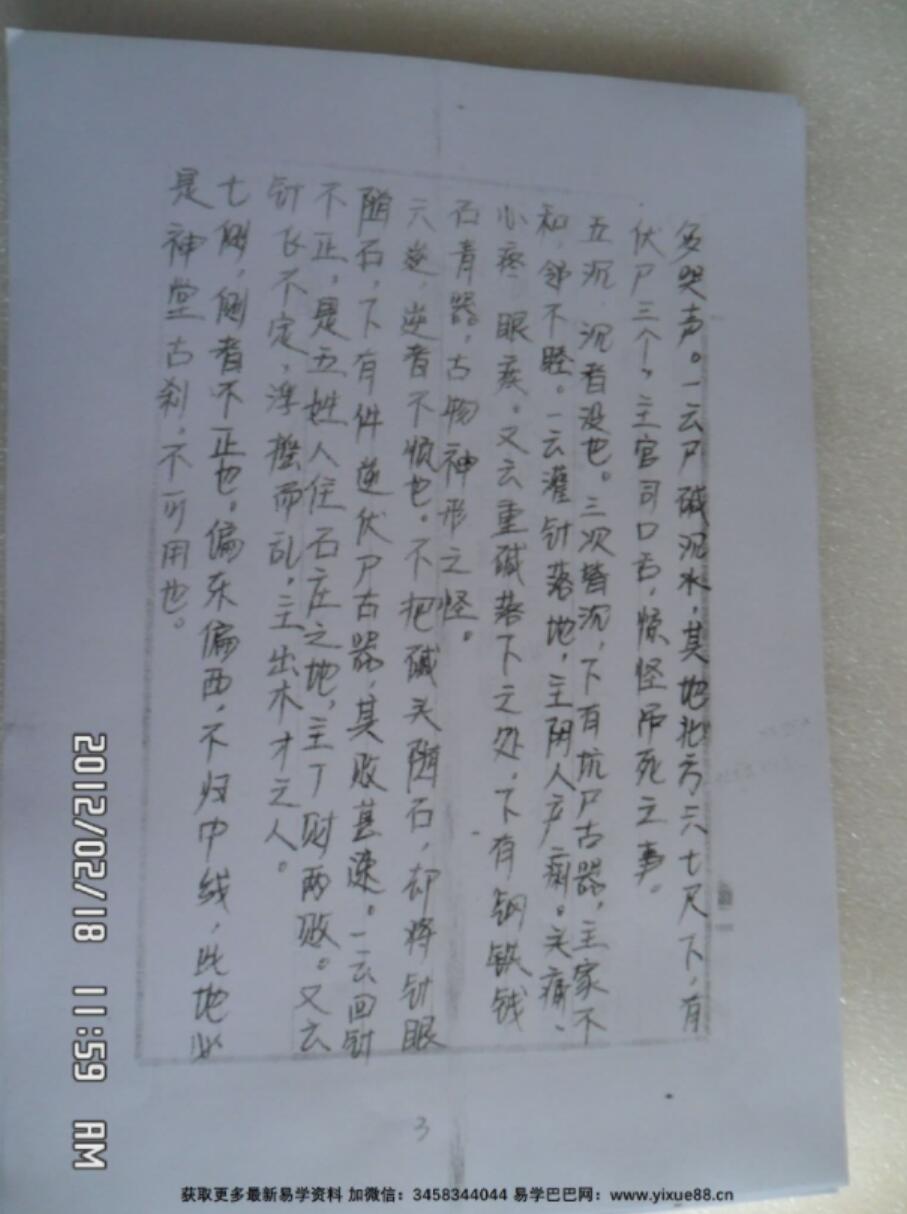 多哭声。一云尸碱泥水，其地北方六七尺下，有
伏尸三个，主官司口舌，惊怪吊死之事。
五沉，沉者没也。三次皆沉，下有坑尸古器，主家不
和，邻不睦。一云灌针落地，主阴人产痢。头痛、
心疼、眼疾。又云重碱落下之处，下有铜铁钱
石青器，古物神形之怪。
六逆，逆者不顺也。不把碱头随石，却将针眼
随石，下有件逆伏尸古器，其败甚速。一云回针
不正，是五姓人住石庄之地，主丁财两败。又云
针飞不定，浮而乱，主出木才之人。
七侧，侧者不正也。偏东偏西，不归中线，此地必
是神堂古刹。不可用也。
3
2012/02/18 11:59 AM
获取更多最新易学资料 加微信：3458344044 易学巴巴网：www.yixue88.cn